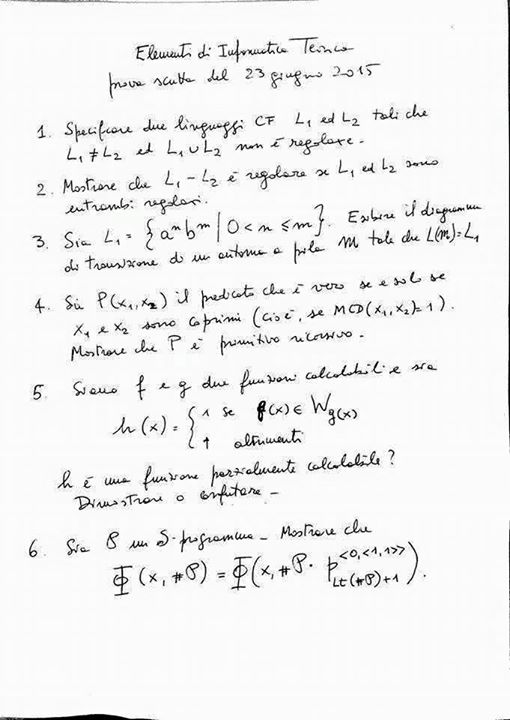 Elementi di Informatica Teorica
prova scritta del 23 giugno 2015
1. Specificare due linguaggi CF L₁ ed L₂ tali che
L₁ ≠ L₂ ed L₁ ∪ L₂ non è regolare.
2. Mostrare che L₁ - L₂ è regolare se L₁ ed L₂ sono
entrambi regolari.
3. Sia L₁ = {aⁿbᵐ | 0 < n ≤ m}. Esibire il diagramma
di transizione di un automa a pila M tale che L(M)=L₁
4. Sia P(x₁,x₂) il predicato che è vero se e solo se
x₁ e x₂ sono coprimi (cioè, se MCD(x₁,x₂)=1).
Mostrare che P è primitivo ricorsivo.
5. Siano f e g due funzioni calcolabili e sia
h(x) = { 1 se f(x) ∈ W_g(x)
↑ altrimenti
h è una funzione parzialmente calcolabile?
Dimostrare o confutare -
6. Sia P un S-programma - Mostrare che
Φ(x, #P) = Φ(x, #P · p_{Lt(#P)+1}^{<0,<1,1>>}).